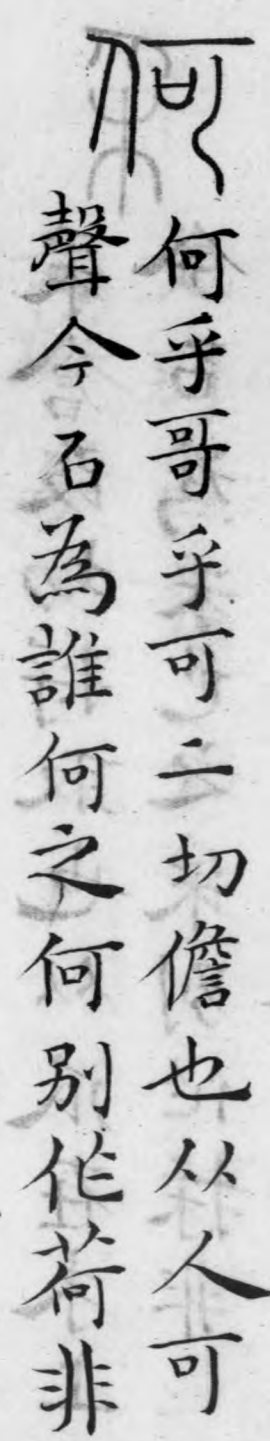 何
何乎哥乎可二切儋也从人可
聲今石為誰何之何别作荷非